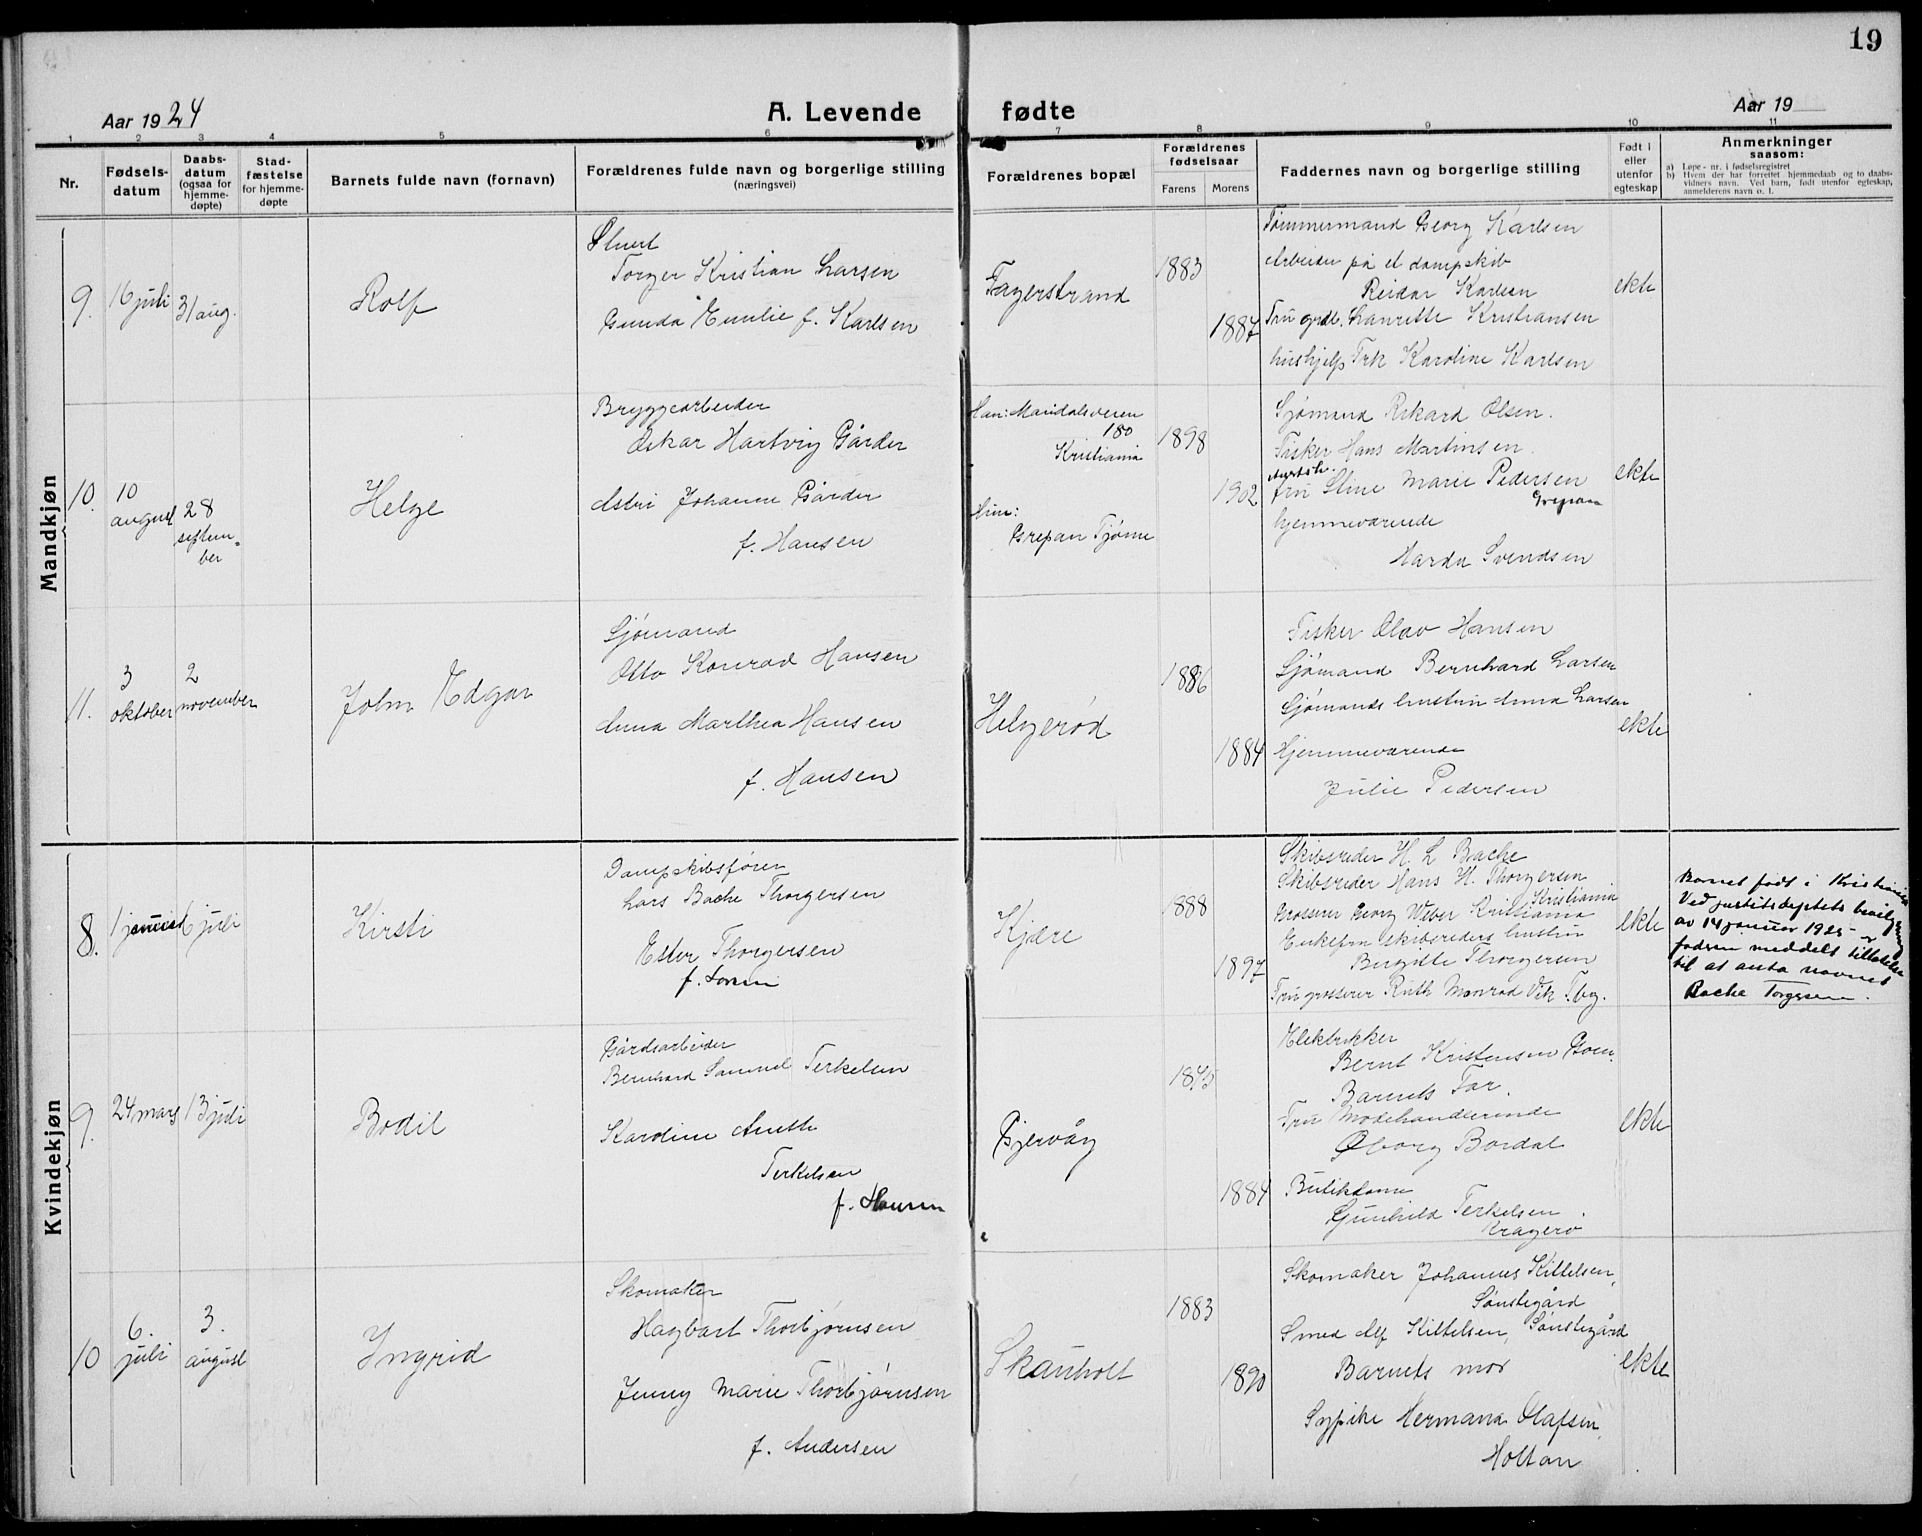 19
Aar 1924
A. Levende fødte
Aar 19
1 2 3 4 5 6 7 8 9 10 11
Nr.
Fødsels-
datum
Daabs-
datum
(ogsaa for
hjemme-
døpte)
Stad-
fæstelse
for hjemme-
døpte
Barnets fulde navn (fornavn)
Forældrenes fulde navn og borgerlige stilling
(næringsvei)
Forældrenes bopæl
Forældrenes
fødselsaar
Farens
Morens
Faddernes navn og borgerlige stilling
Født i
eller
utenfor
egteskap
Anmerkninger
saasom:
a) Løpe-nr. i fødselsregistret
b) Hvem der har forrettet hjemmedaab og to daabs-
vidners navn. Ved barn, født utenfor egteskap,
anmelderens navn o. l.
Mandkjøn
9.
16 juli
31 aug.
Rolf
Torger Kristian Larsen
Gunda Emilie f. Karlsen
Fagerstrand
1883
1887
Tømmermand Georg Karlsen
Arbeider på et dampskib
Reidar Karlsen
Fru Laurette Kristiansen
hushjelp Frk Karoline Karlsen
ekte
10.
10
august
28
septem-
ber
Helge
Bryggearbeider
Oskar Hartvig Gårder
Astri Johanne Gårder
f. Hansen
Han: Mandalsveien
180
Kristiania
Hun:
Grepan Tjøme
1898
1902
Sjømand Rikard Olsen.
Fisker Hans Martinsen.
fru Stine Marie Pedersen
Grepan
hjemmeværende
Harda Svendsen
ekte
11.
3
oktober
2
november
John Edgar
Sjømand
Otto Konrad Hansen
Anna Marthea Hansen
f. Hansen
Helgerød
1886
1884
Fisker Olav Hansen
Sjømand Bernhard Larsen
Sjømands hustru Anna Larsen
Hjemmeværende
Julie Pedersen
ekte
Kvindekjøn
8.
1 januar
6 juli
Kirsti
Dampskibsfører
Lars Bache Thorgersen
Ester Thorgersen
f.
Kjære
1888
1897
Skibsreder H. L Bache
Skibsreder Hans H. Thorgersen
Kristiania
Grosserer Georg Weber Kristiania
Enkefru skibsreders hustru
Birgitte Thorgersen
Fru grosserer Ruth Monrad Vik Tbg.
ekte
Barnet født i Kristiania
Ved justitsdeptets bevilgning
av 14 januar 1925 er
fadren meddelt tillatelse
til at anta navnet
Bache Torgersen.
9.
24 mars
13 juli
Bodil
Gårdsarbeider
Bernhard Samuel Terkelsen
Karoline Anette
Terkelsen
f. Hansen
Gjervåg
1875
1884
Elektrikker
Bernt Kristensen
Barnets Far.
Fru Modehandlerinde
Øborg Bordal
Butikdame
Gunhild Terkelsen.
Kragerø
ekte
10
6.
juli
3.
august
Ingrid
Skomaker
Hagbart Thorbjørnsen
Jenny Marie Thorbjørnsen
f. Andersen
Skauholt
1883
1890
Skomaker Johannes Kittelsen,
Sønstegård
Smed Alf Kittelsen, Sønstegård
Barnets mor
Sypike Hermana Olafsen,
Holtan
ekte